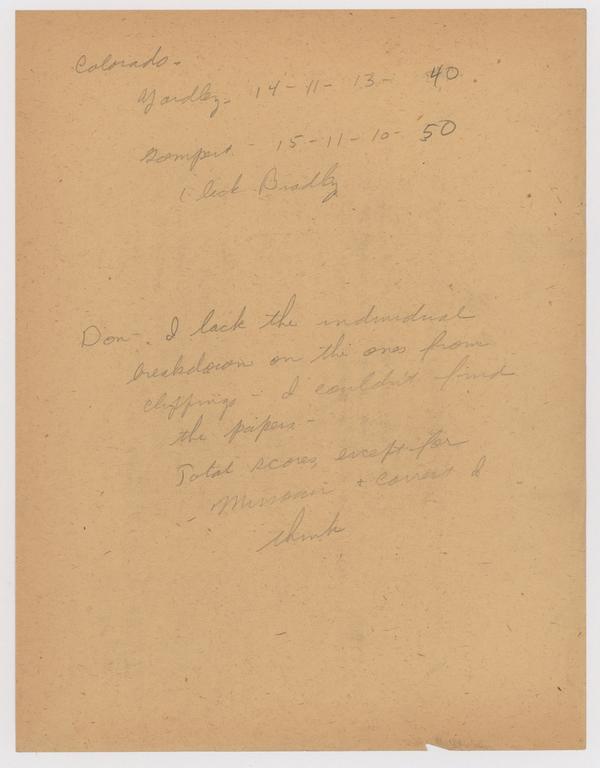 Colorado -
Yardley - 14 - 11 - 13 - 40
Gompert - 15 - 11 - 10 - 50
I lack Bradley
Don - . I lack the individual
breakdown on the ones from
clippings - I couldn't find
the papers -
Total scores, except for
Missouri + correct I
think